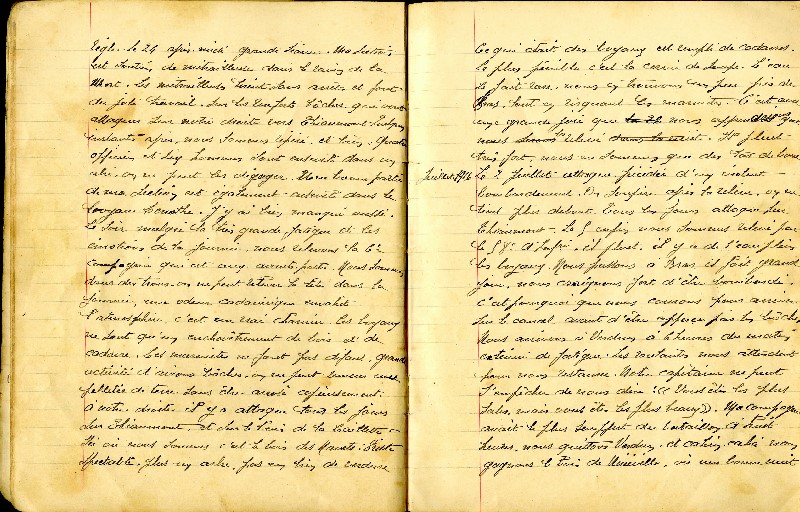 règle. Le 24 après-midi grande séance. Ma section
est soutien de mitrailleuse dans le ravin de la
Mort. Les mitrailleurs tirent sans arrêt et font
du joli travail. Sur les renforts boches, qui vont
attaquer sur notre droite vers Thiaumont. Quelques
instants après, nous sommes repéré et bien. Quatre
officiers et dix hommes sont enterré dans un
abri, on ne peut les dégager. Une bonne partie
de ma section est également enterrée dans le
boyau. J'y ai bien manqué
Le soir malgré la très grande fatigue et les
émotions de la journée, nous relevons la 6e
compagnie qui est aux avants-postes. Nous sommes
dans des trous, on ne peut lever la tête dans la
journée, une odeur cadavérique envahit
l'atmosphère, c'est un vrai charnier. Les boyaux
ne sont qu'un enchevêtrement de bois et de
cadavre. Les ne font pas défaut, grande
activité et avions boches, on ne peut remuer une
pelletée de terre sans être arrosé copieusement.
à notre droite il y a attaque tous les jours
sur Thiaumont et dans le bois de la
là où nous sommes c'est le bois des Triste
spectacle, plus un arbre, pas un brin de verdure
Ce qui était des boyaux est rempli de cadavres.
Le plus pénible c'est la corvée de soupe. L'eau
se fait rare, nous en trouvons un peu près de
Bras, tout en risquant les marmites. C'est avec
une grande joie que nous apprenons que
nous relevé Il pleut
très fort, nous ne sommes que des tas de boue.
Juillet 1916 Le 2 Juillet attaque précédée d'un violent
bombardement. On soupire après la relève, on ne
tient plus debout. Tous les jours attaque sur
Thiaumont. Le 5 enfin nous sommes relevé par
le d'Infrie, il pleut, il y a de l'eau plein
les boyaux. Nous passons à Bras il fait grand
jour, nous craignons fort d'être bombardé,
c'est pourquoi que nous courons pour arriver
sur le canal avant d'être aperçu par les boches.
Nous arrivons à Verdun à 6 heures du matin
exténué de fatigue. Les roulants nous attendent
pour nous restaurer. Notre capitaine ne peut
s'empêcher de nous dire : « Vous êtes les plus
sales, mais vous êtes les plus beaux ». Ma compagnie
avait le plus souffert du bataillon. A huit
heures, nous quittons Verdun, et cahin-caha nous
gagnons le bois de Nixéville, où une bonne nuit